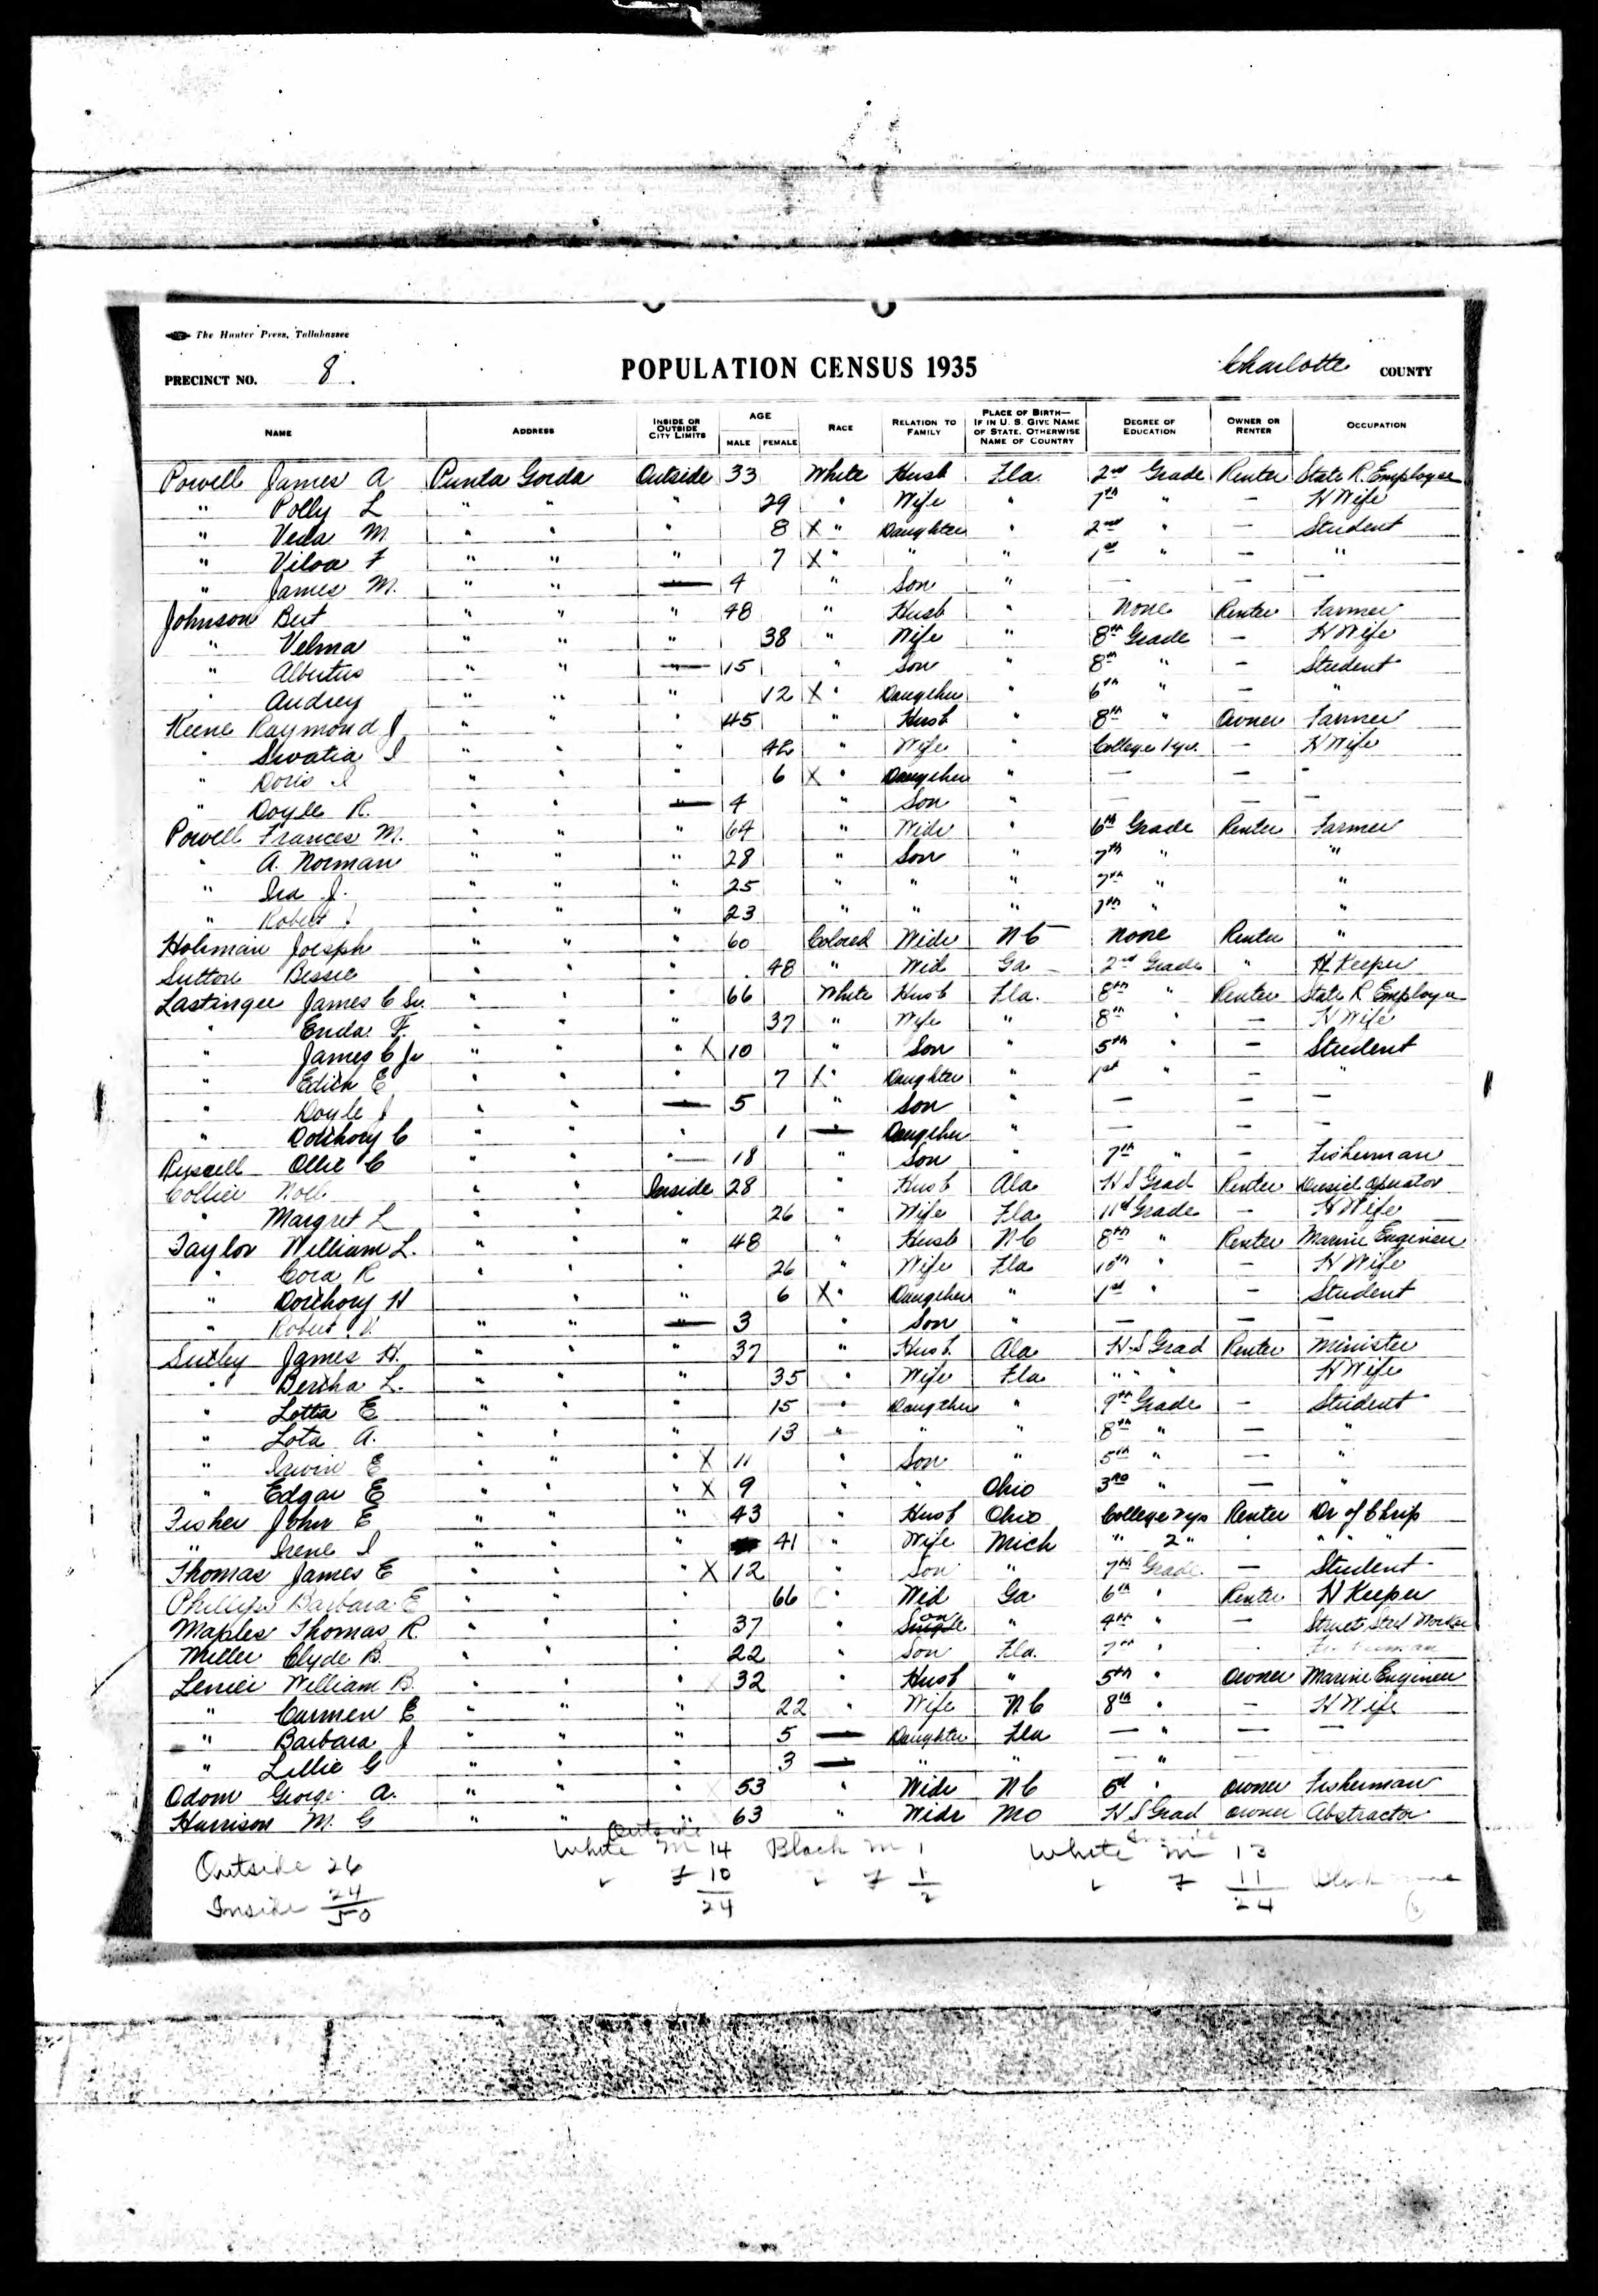 The Hunter Press, Tallahassee
PRECINCT NO. 8. POPULATION CENSUS 1935 Charlotte COUNTY
NAME ADDRESS INSIDE OR OUTSIDE CITY LIMITS AGE MALE FEMALE RACE RELATION TO FAMILY PLACE OF BIRTH— IF IN U. S. GIVE NAME OF STATE. OTHERWISE NAME OF COUNTRY DEGREE OF EDUCATION OWNER OR RENTER OCCUPATION
Powell James A Punta Gorda Outside 33 White Husb Fla. 2nd Grade Renter State R. Employee
" Polly L " " " 29 " Wife " 7th " — H Wife
" Veda M " " " 8 X " Daughter " 2nd " — Student
" Viloa F " " " 7 X " " " 1st " — "
" James M. " " " 4 " Son " — — —
Johnson Bert " " " 48 " Husb " None Renter Farmer
" Velma " " " 38 " Wife " 8th Grade — H Wife
" Albertus " " " 15 " Son " 8th " — Student
" Audrey " " " 12 X " Daugther " 6th " — "
Keene Raymond J " " " 45 " Husb " 8th " Owner Farmer
" Swatia I " " " 42 " Wife " College 1 yr. — H Wife
" Doris I " " " 6 X " Daugther " — — -
" Doyle R. " " " 4 " Son " — — —
Powell Frances M. " " " 64 " Wido " 6th Grade Renter Farmer
" A. Norman " " " 28 " Son " 7th " "
" Ira J. " " " 25 " " " 7th " "
" Robert J " " " 23 " " " 7th " "
Holiman Joesph " " " 60 Colored Wido NC None Renter "
Sutton Bessie " " " 48 " Wid Ga 2nd Grade " H Keeper
Lastinger James C Sr. " " " 66 White Husb Fla. 8th " Renter State R Employee
" Enda F. " " " 37 " Wife " 8th " — H Wife
" James C Jr " " " X 10 " Son " 5th " — Student
" Edith E " " " 7 X " Daughter " 1st " — "
" Doyle J " " " 5 " Son " — — —
" Dorthory C " " " 1 " Daugther " — — -
Russell Ollie C " " " 18 " Son " 7th " — Fisherman
Collier Noll " " Inside 28 " Husb Ala H S Grad Renter Operator
" Margret L " " " 26 " Wife Fla 11th Grade — H Wife
Taylor William L. " " " 48 " Husb NC 8th " Renter Marine Engineer
" Cora R " " " 26 " Wife Fla 10th " — H Wife
" Dorthory H " " 6 X " Daugther " 1st " — Student
" Robert V. " " " 3 " Son " — — —
James H. " " " 37 " Husb Ala H.S Grad Renter Minister
" Bertha L. " " " 35 " Wife Fla " " " H Wife
" Lotta E " " " 15 " Daugther " 9th Grade — Student
" Lota A. " " " 13 " " " 8th " — "
" Irwin E " " " X 11 " Son " 5th " — "
" Edgar E " " " X 9 " " Ohio 3rd " — "
Fisher John E " " " 43 " Husb Ohio College 2 yrs Renter Dr of Chrip
" Irene I " " " 41 " Wife Mich " 2 " " " " "
Thomas James E " " " X 12 " Son " 7th Grade — Student
Phillips Barbara E " " " 66 " Wid Ga 6th " Renter H Keeper
Maples Thomas R. " " " 37 " Son " 4th " — Struct. Steel Worker
Miller Clyde B. " " 22 " Son Fla. 7th " -
Lenier William B. " " " 32 " Husb " 5th " Owner Marine Engineer
" Carmen E " " " 22 " Wife NC 8th " — H Wife
" Barbara J " " " 5 Daughter Fla — " — —
" Lillie G " " " 3 " " — " — —
Odom George A. " " " 53 " Wido NC 5th " Owner Fisherman
Harrison M. G " " " 63 " Wido Mo H S Grad Owner Abstractor
Outside Inside
Outside 26 White M 14 Black M 1 White M 13
Inside 24 F 10 F 1 F 11 Black none
50 24 2 24